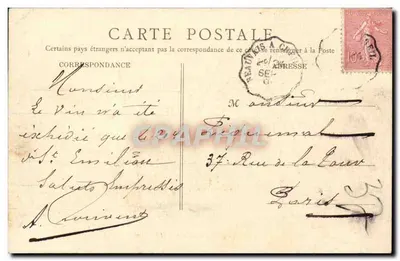 CARTE POSTALE
Certains pays étrangers n'acceptant pas la correspondance de ce côté, se renseigner à la Poste
CORRESPONDANCE
ADRESSE
BEAUVAIS A CREIL
SEPT
Monsieur
Le vin m'a été
expédié que
St Emilion
Saluts Empressés
Monsieur
37 Rue de la Tour
Paris